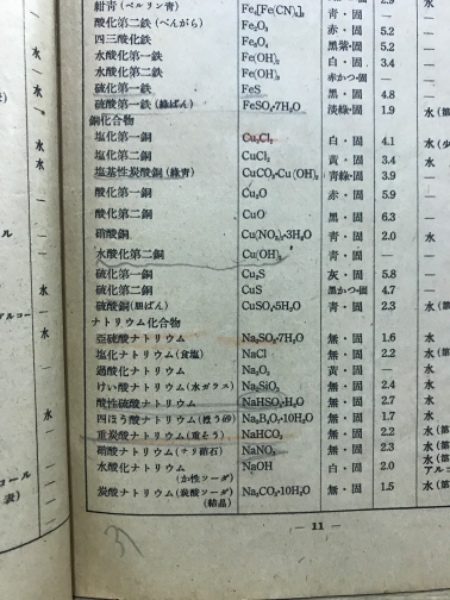 紺青(ベルリン青) Fe₄[Fe(CN)₆]₃ 青・固 2.9 水
酸化第二鉄(べんがら) Fe₂O₃ 赤・固 5.2 —
四三酸化鉄 Fe₃O₄ 黒紫・固 5.2 —
水酸化第一鉄 Fe(OH)₂ 白・固 3.4 —
水酸化第二鉄 Fe(OH)₃ 赤かつ・固 — —
硫化第一鉄 FeS 黒・固 4.8 —
硫酸第一鉄(緑ばん) FeSO₄・7H₂O 淡緑・固 1.9 水
銅化合物
塩化第一銅 Cu₂Cl₂ 白・固 4.1 水(少
塩化第二銅 CuCl₂ 黄・固 3.4 水
塩基性炭酸銅(緑青) CuCO₃・Cu(OH)₂ 青緑・固 3.9 —
酸化第一銅 Cu₂O 赤・固 5.9 —
酸化第二銅 CuO 黒・固 6.3 —
硝酸銅 Cu(NO₃)₂・3H₂O 青・固 2.0 水
水酸化第二銅 Cu(OH)₂ 青・固 — —
硫化第一銅 Cu₂S 灰・固 5.8 —
硫化第二銅 CuS 黒かつ・固 4.7 —
硫酸銅(胆ばん) CuSO₄・5H₂O 青・固 2.3 水
ナトリウム化合物
亞硫酸ナトリウム Na₂SO₃・7H₂O 無・固 1.6 水
塩化ナトリウム(食塩) NaCl 無・固 2.2 水
過酸化ナトリウム Na₂O₂ 黄・固 — 水
けい酸ナトリウム(水ガラス) Na₂SiO₃ 無・固 2.4 水
酸性硫酸ナトリウム NaHSO₄・H₂O 無・固 2.7 水
四ほう酸ナトリウム(硼う砂) Na₂B₄O₇・10H₂O 無・固 1.7 水
重炭酸ナトリウム(重そう) NaHCO₃ 無・固 2.2 水
硝酸ナトリウム(チリ硝石) NaNO₃ 無・固 2.3 水
水酸化ナトリウム NaOH 白・固 2.0 水
(か性ソーダ) アルコ
炭酸ナトリウム(炭酸ソーダ) Na₂CO₃・10H₂O 無・固 1.5 水
(結晶)
— 11 —